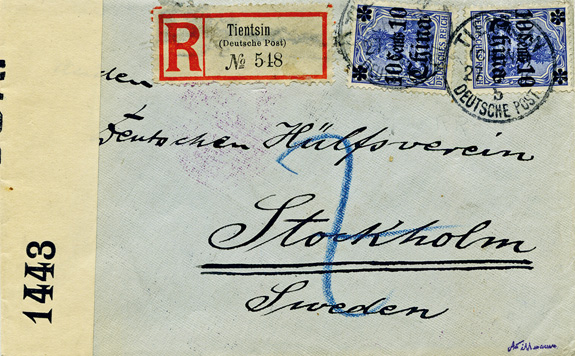 R
Tientsin
(Deutsche Post)
№ 548
10 Cents 10
China
DEUTSCHES REICH
10 Cents 10
China
DEUTSCHE POST
den
Deutschen Hülfsverein
Stockholm
Sweden
1443